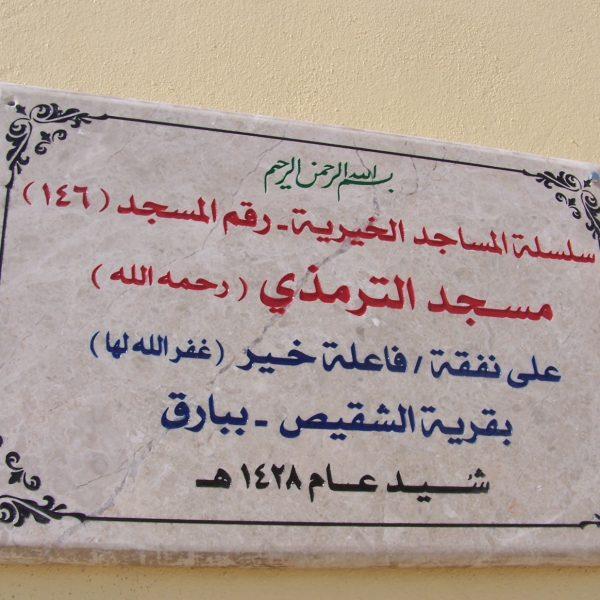 بسم الله الرحمن الرحيم
سلسلة المساجد الخيرية - رقم المسجد (١٤٦)
مسجد الترمذي (رحمه الله)
على نفقة / فاعلة خير (غفر الله لها)
بقرية الشقيص - ببارق
شيد عام ١٤٢٨ هـ